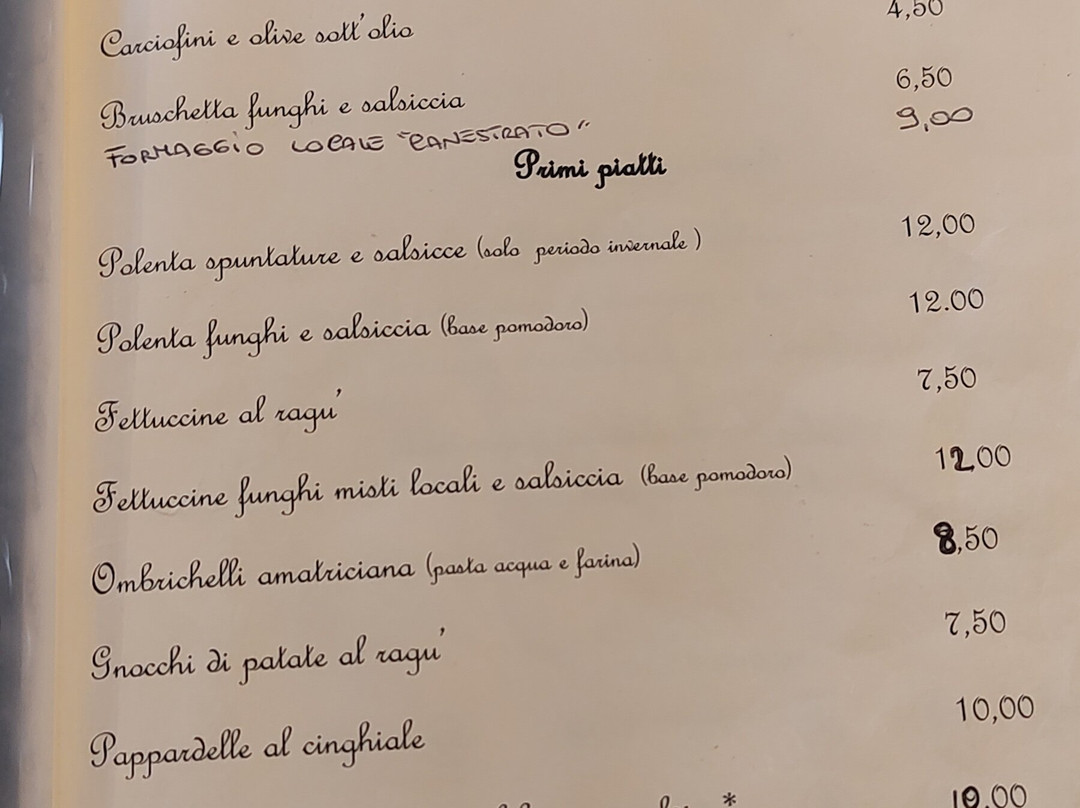 Carciofini e olive sott'olio 4,50
Bruschetta funghi e salsiccia 6,50
FORMAGGIO LOCALE "CANESTRATO" 9,00
Primi piatti
Polenta spuntature e salsicce (solo periodo invernale ) 12,00
Polenta funghi e salsiccia (base pomodoro) 12.00
Fettuccine al ragu' 7,50
Fettuccine funghi misti locali e salsiccia (base pomodoro) 12,00
Ombrichelli amatriciana (pasta acqua e farina) 8,50
Gnocchi di patate al ragu' 7,50
Pappardelle al cinghiale 10,00
* 10,00